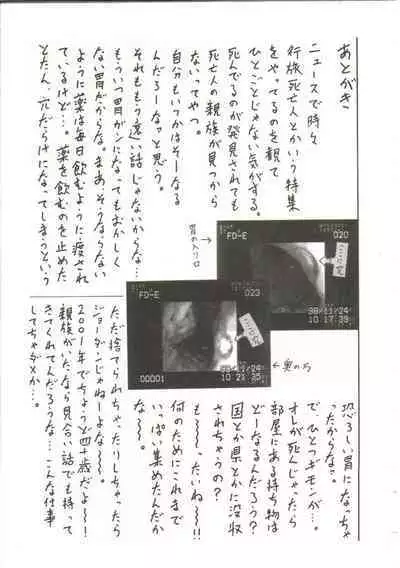 あとがき
ニュースで時々
行旅死亡人とかいう特集
をやってるのを観て
ひとごとじゃない気がする。
死んでるのが発見されても
死亡人の親族が見つから
ないってやつ。
自分もいつかはそーなる
んだろーなっと思う。
それももう遠い話じゃないからな…
もういつ胃がンになってもおかしく
ない胃だからな。まあ、そうならない
ように薬は毎日飲むように渡され
ているけど…。薬を飲むのを止めた
とたん、穴だらけになってしまうという
恐ろしい胃になっちゃ
ったからなぁ。
でひとつギモンが…。
オレが死んじゃったら
部屋にある持ち物は
どーなるんだろう?
国とか県とかに没収
されちゃうの?
も~~、たいね~!!
何のためにこれまで
いっぱい集めたんだか
な~~。
ただ捨てられちゃったりしちゃったら
ジョーダンじゃねーよな~~!
2001年でちょうど四十歳だよ~~!
親族がいたなら見合い話でも持って
きてくれてんだろうな…こんな仕事
してちゃダメか…。
胃の入り口→
FD-E
020
ここに穴
98/11/24
10 17 39
FD-E
023
ここに穴
98/11/24
00001
10 21 35
←奥の方